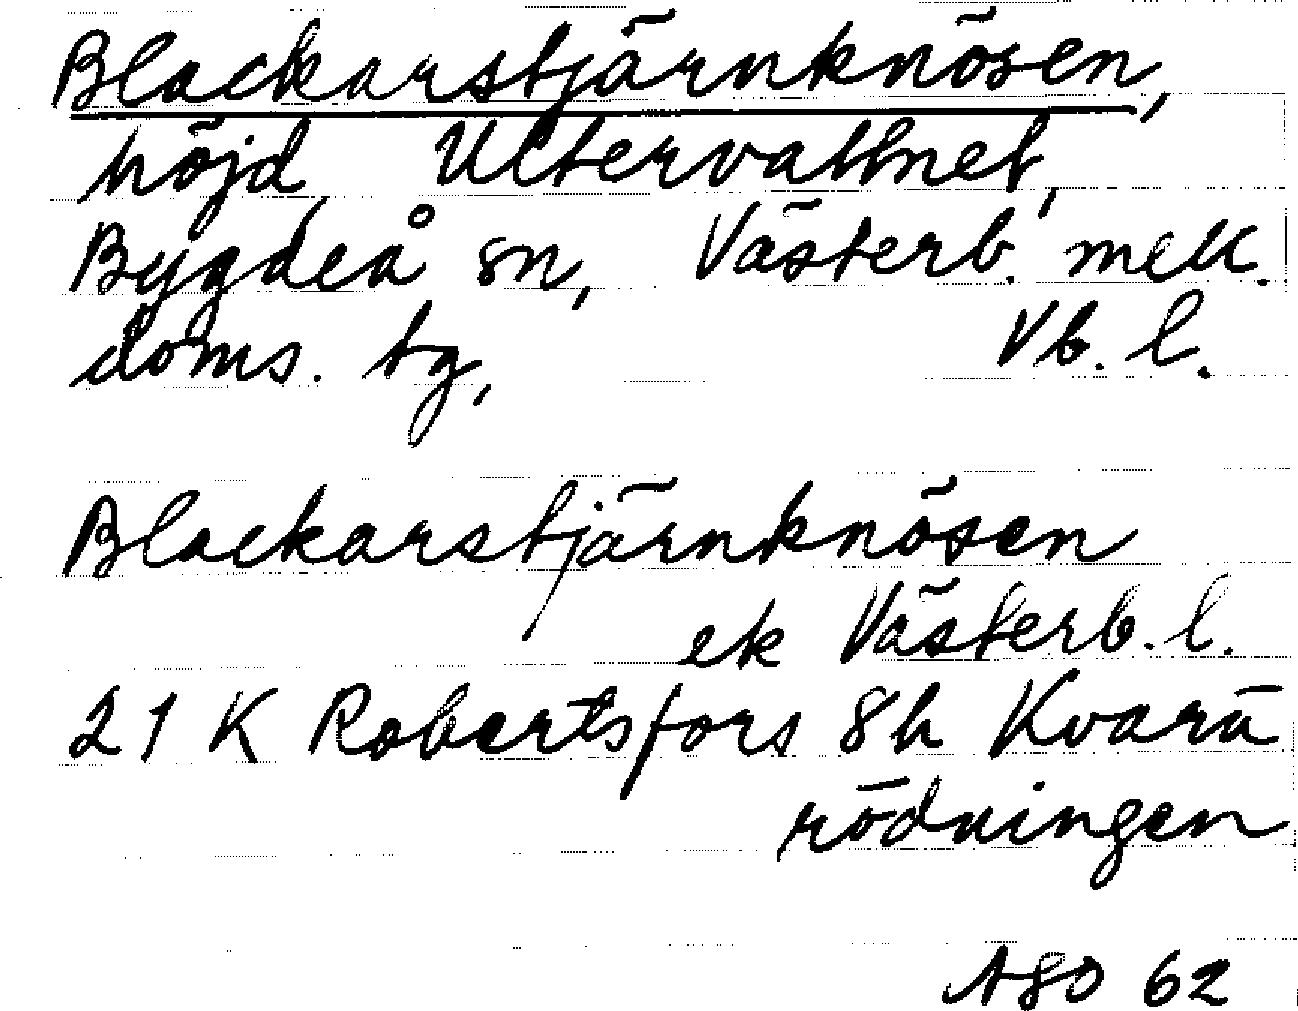 Blackarstjärnknösen,
höjd Ultervattnet,
Bygdeå sn, Västerb. mell.
doms. tg, Vb. l.
Blackarstjärnknösen
ek Västerb. l.
21 K Robertsfors 8h Kvarn
rödningen
ASO 62